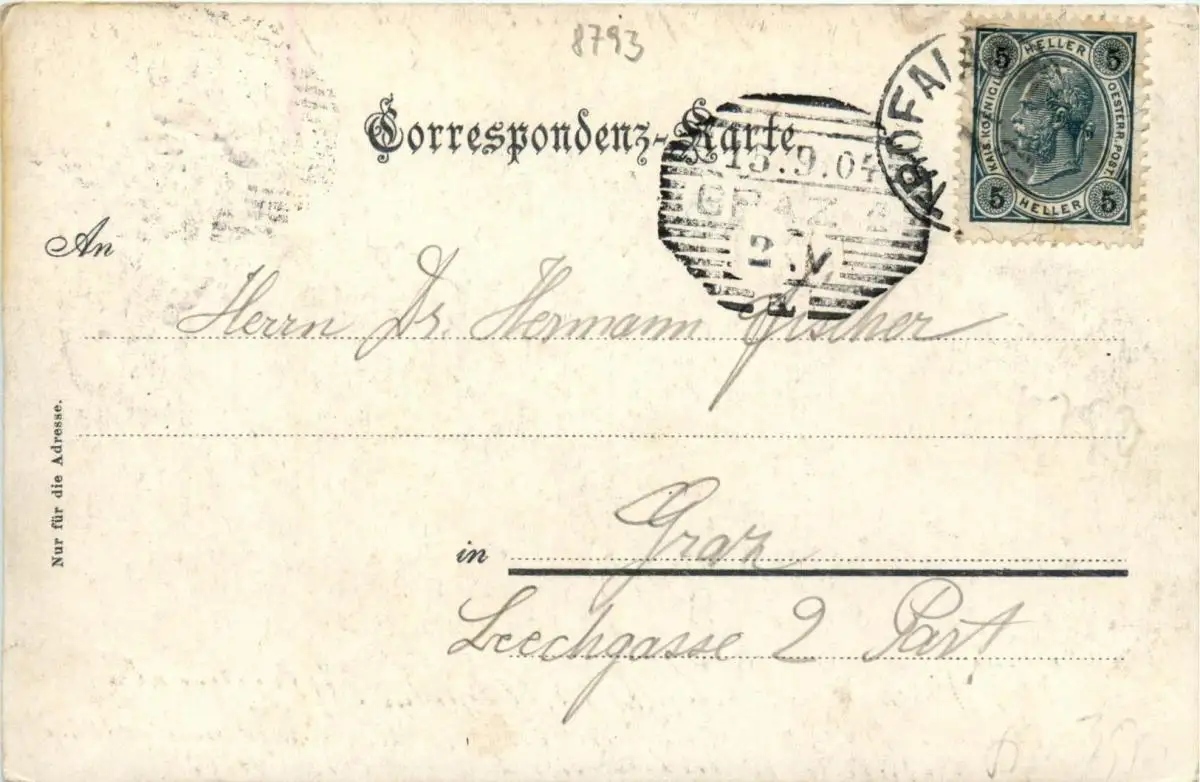 8793
Correspondenz-Karte
5 HELLER 5
KAIS. KOENIGL. OESTERR. POST.
5 HELLER 5
TROFAI
13.9.04
GRAZ
2.V
An
Herrn Dr. Hermann Fischer
Nur für die Adresse.
in Graz
Leechgasse 2 Part